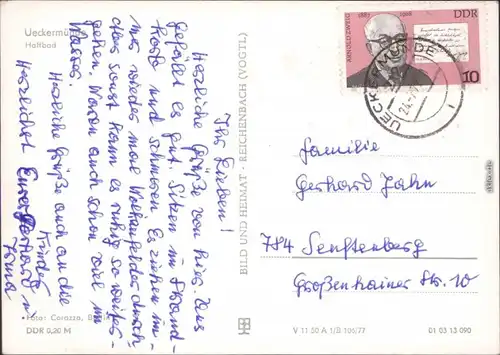 Ueckermünde
Haffbad
Ihr Lieben!
Herzliche Grüße von hier. Uns
gefällt es gut. Sitzen im Strand-
korb und schmoren. Es ziehen im-
mer wieder mal Wolkenfelder durch-
aber sonst kann es ruhig so weiter-
gehen. Waren auch schon viel im
Wasser.
Herzliche Grüße auch an die
Kinder
Herzlichst Eure Gerhard u.
Irma
BILD UND HEIMAT · REICHENBACH (VOGTL)
Foto: Corazza, Berlin
DDR 0,20 M
ARNOLD ZWEIG
1887 1968
DDR
10
UECKERMÜNDE
Familie
Gerhard Jahn
784 Senftenberg
Großenhainer Str. 10
V 11 50 A 1/B 105/77
01 03 13 090